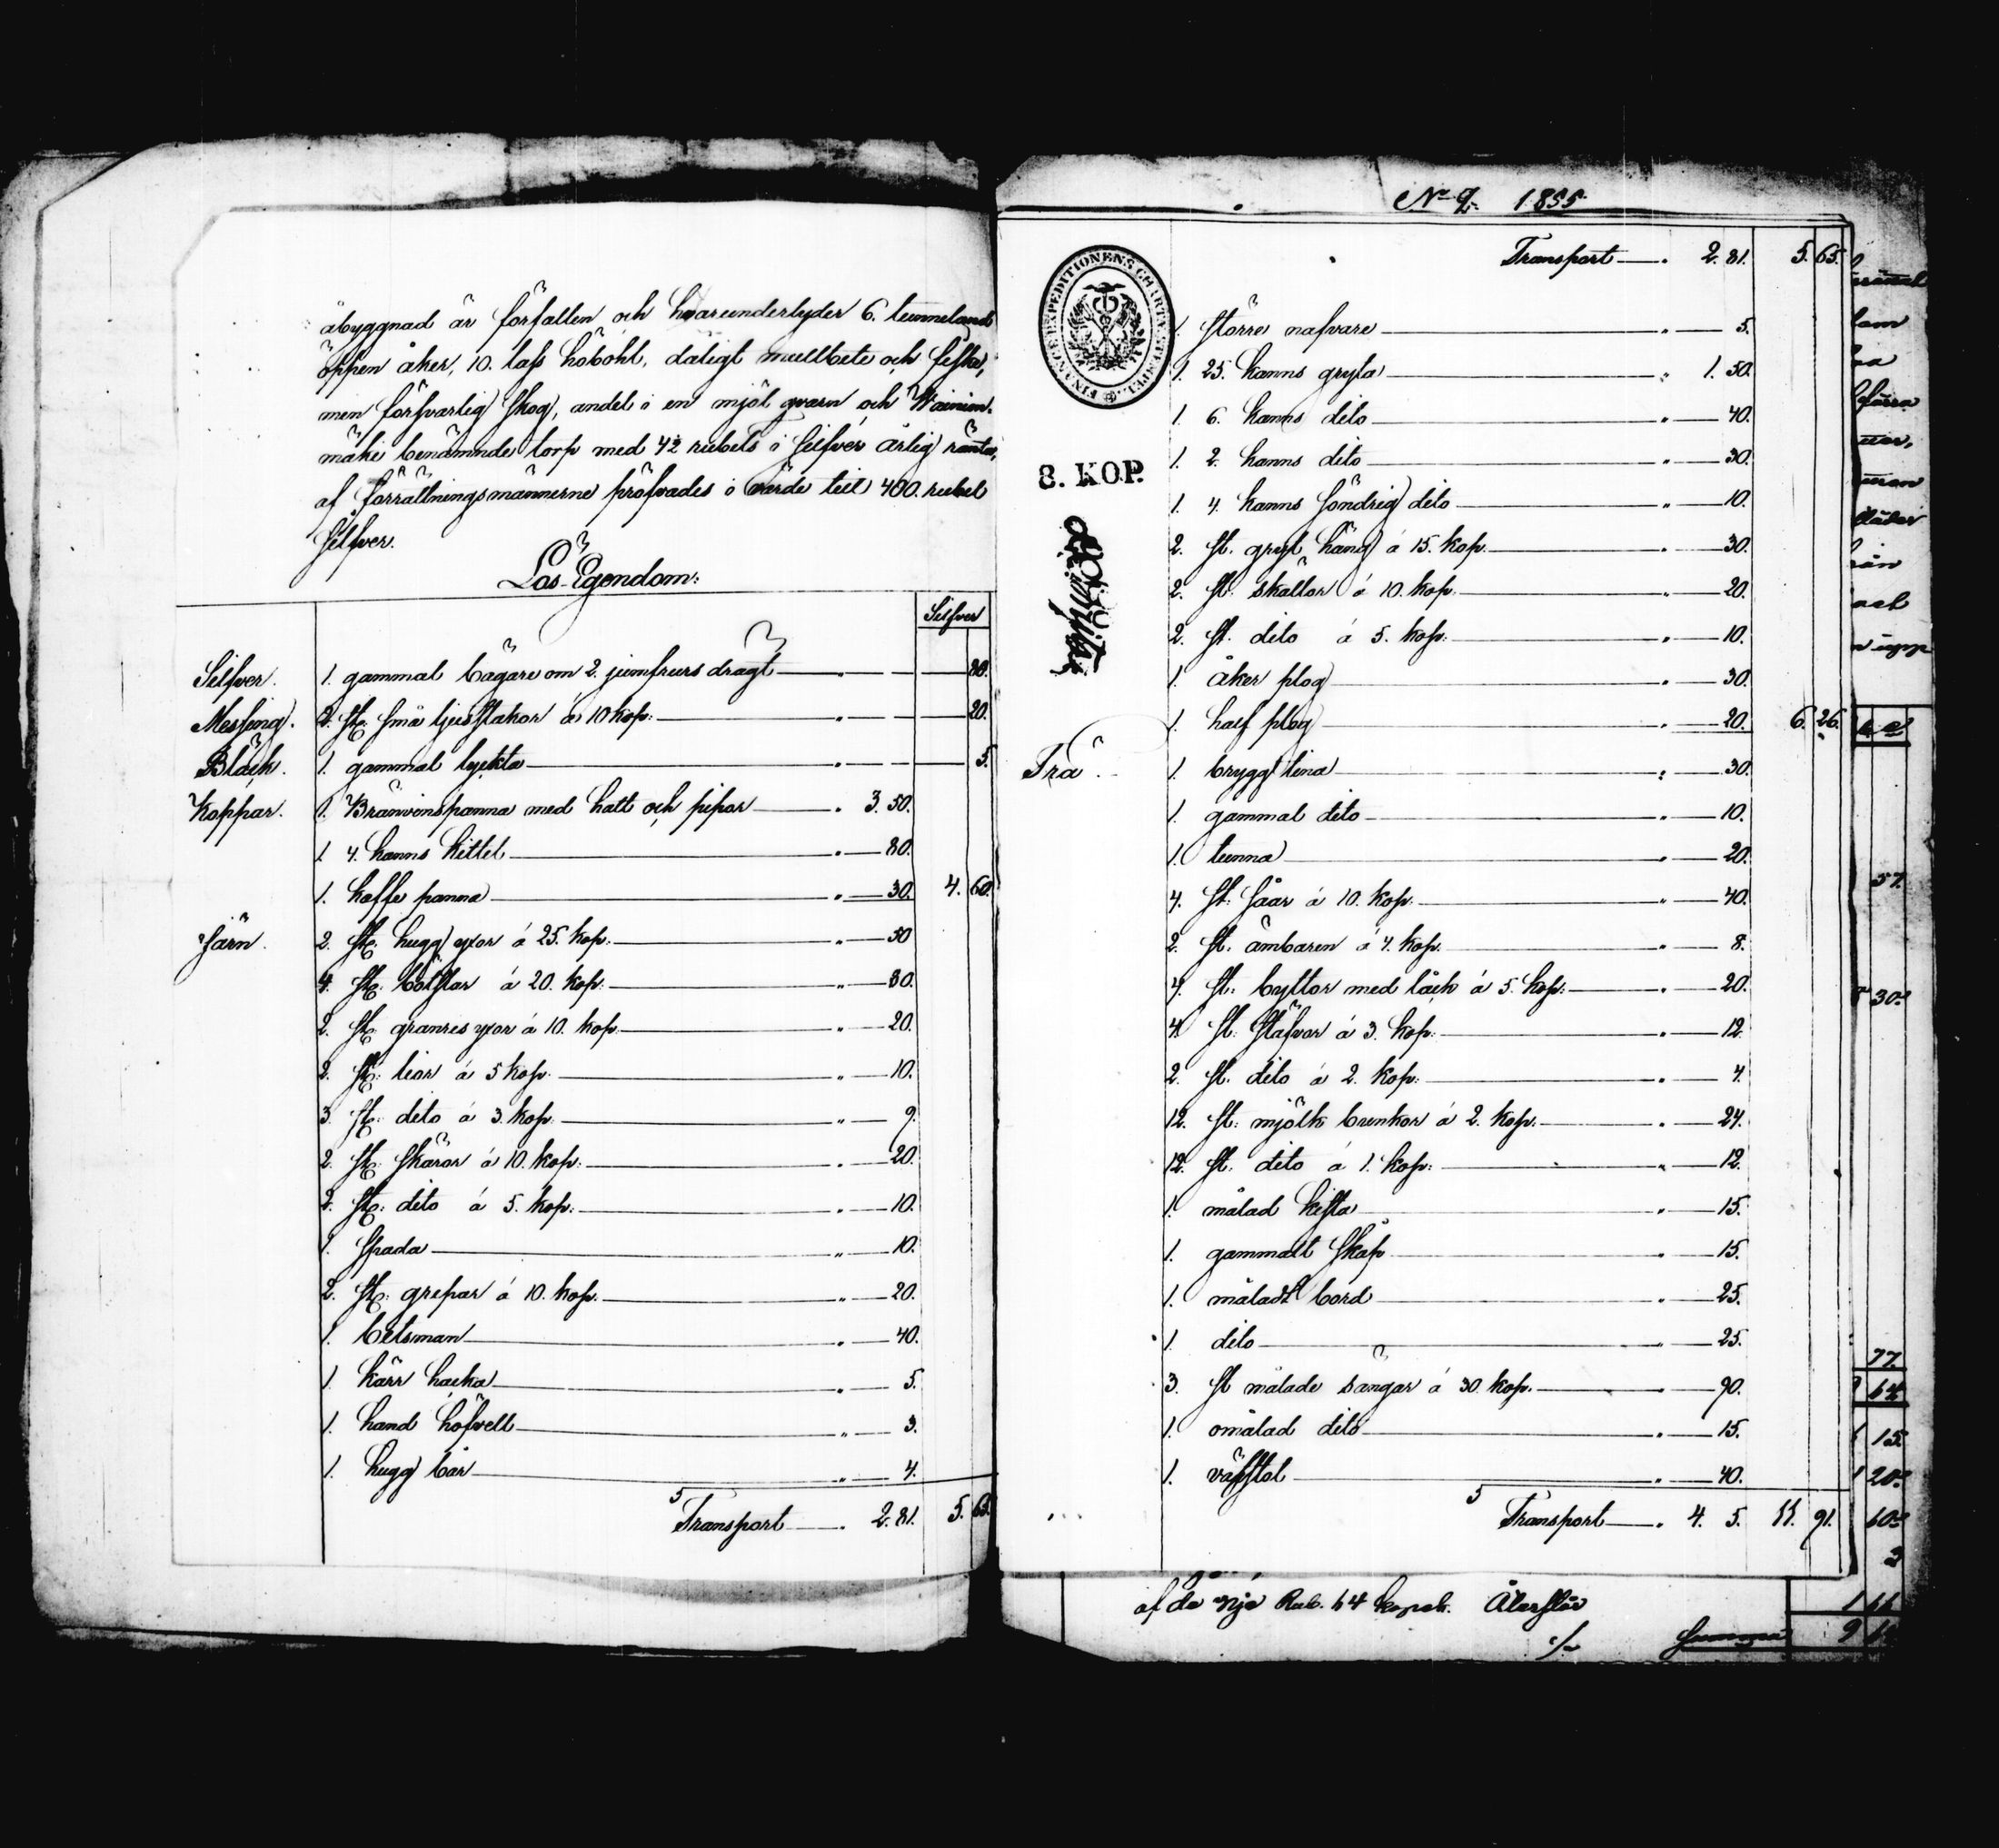 åbyggnad är förfallen och hvarunderlyder 6. tunneland
öppen åker, 10. lass höbohl, dåligt mulbete och fiske,
men försvarlig skog, andel i en mjöl qvarn och Wainion-
mäki benämnde torp med 42 rubels i silfver årlig ränta,
af förrättningsmännerne pröfvades i värde till 400. rubel
Silfver.
Lös-Egendom:
Silfver
Silfver. 1. gammal bägare om 2. jumfrurs drägt " — 80.
Messing. 2. st. små ljusstakar a 10 kop: " — 20.
Bläck. 1. gammal lyckta " — 5.
Koppar. 1. Bränvinspanna med hatt och pipor " 3. 50.
1. 4. kanns kittel " — 80.
1. kaffe panna " — 30. 4. 60.
Järn. 2. st. hugg yxor á 25. kop: " — 50
4. st. bötstar á 20. kop: " — 80.
2. st. granres yxor á 10. kop. " — 20.
2. st. liar á 5 kop. " — 10.
3. st. dito á 3. kop. " — 9.
2. st. skäror á 10. kop: " — 20.
2. st. dito á 5. kop: " — 10.
1. Spada " — 10.
2. st. grepar á 10. kop. " — 20.
1. betsman " — 40.
1. kärr hacka " — 5.
1. hand höfvell " — 3.
1. hugg bår " — 4.
Transport " 2. 81. 5. 65.
No 2. 1855.
FINANCE EXPEDITIONENS CHARTÆ STEMPEL
8. KOP.
Transport " 2. 81. 5. 65.
1. större nafvare " — 5.
1. 25. kanns gryta " 1. 50.
1. 6. kanns dito " — 40.
1. 2. kanns dito " — 30.
1. 4. kanns söndrig dito " — 10.
2. st. gryt häng á 15. kop. " — 30.
2. st. skällor á 10. kop. " — 20.
2. st. dito á 5. kop. " — 10.
1. åker plog " — 30.
1. half plog " — 20. 6. 26.
Trä. 1. brygg tina " — 30.
1. gammal dito " — 10.
1. tunna " — 20.
4. st. såar á 10. kop. " — 40.
2. st. ämbaren á 4. kop. " — 8.
4. st. byttor med läck á 5. kop: " — 20.
4. st. stäfvor á 3. kop. " — 12.
2. st. dito á 2. kop: " — 4.
12. st. mjölk bunkor á 2. kop. " — 24.
12. st. dito á 1. kop: " — 12.
1. målad kista " — 15.
1. gammalt skåp " — 15.
1. måladt bord " — 25.
1. dito " — 25.
3. st målade sängar á 30. kop. " — 90.
1. omålad dito " — 15.
1. väfstol " — 40.
Transport " 4. 5. 11. 91.
af de nije Rub. 64 kopek. Återstår
./. Summa
57.
30
77.
64
15
20
60
3